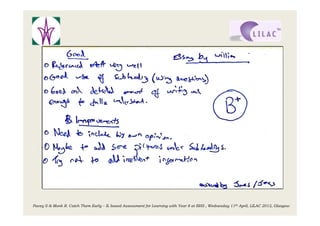 LILAC
Good
Essay by william
Referenced stuff very well
Good use of Subheading (using questions)
Good and detailed amount of writing and
enough to understand.
B+
Improvements
Need to include his own opinion.
Maybe to add some pictures under Subheadings.
Try not to add irrelevant information
assessed by James /
Pavey S & Monk R. Catch Them Early - IL based Assessment for Learning with Year 8 at BHS , Wednesday 11th April, LILAC 2012, Glasgow